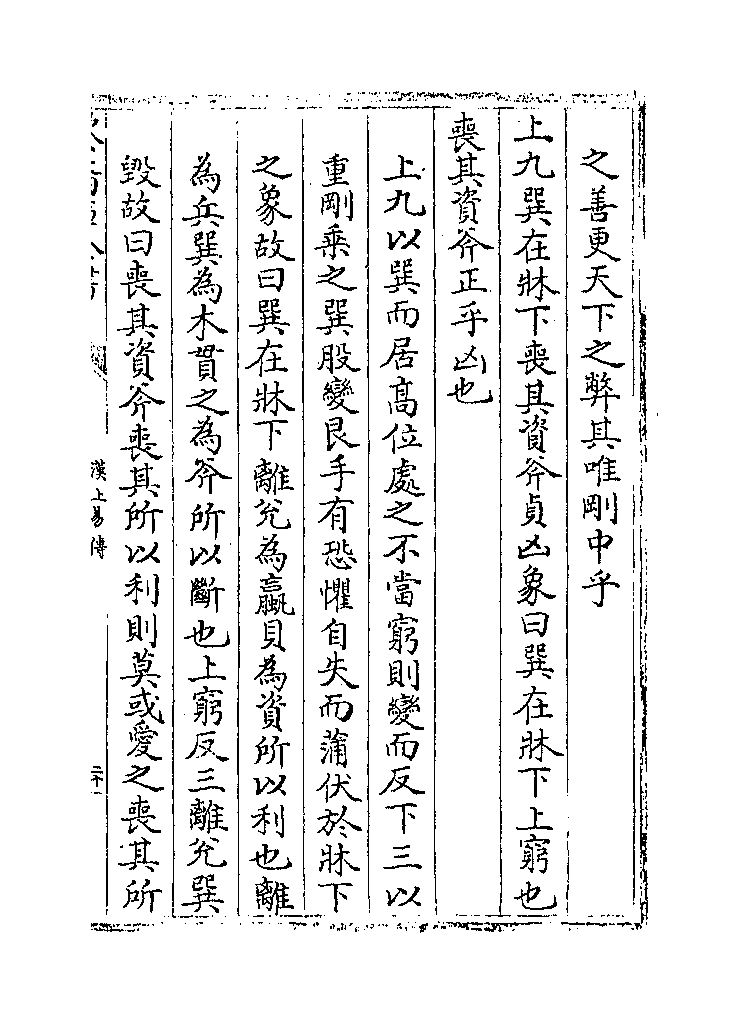 之善更天下之弊其唯剛中乎
上九巽在牀下喪其資斧貞凶象曰巽在牀下上窮也
喪其資斧正乎凶也
上九以巽而居髙位處之不當窮則變而反下三以
重剛乗之巽股變艮手有恐懼自失而蒲伏於牀下
之象故曰巽在牀下離兊為蠃貝為資所以利也離
為兵巽為木貫之為斧所以斷也上窮反三離兊巽
毀故曰喪其資斧喪其所以利則莫或愛之喪其所
漢上易傳